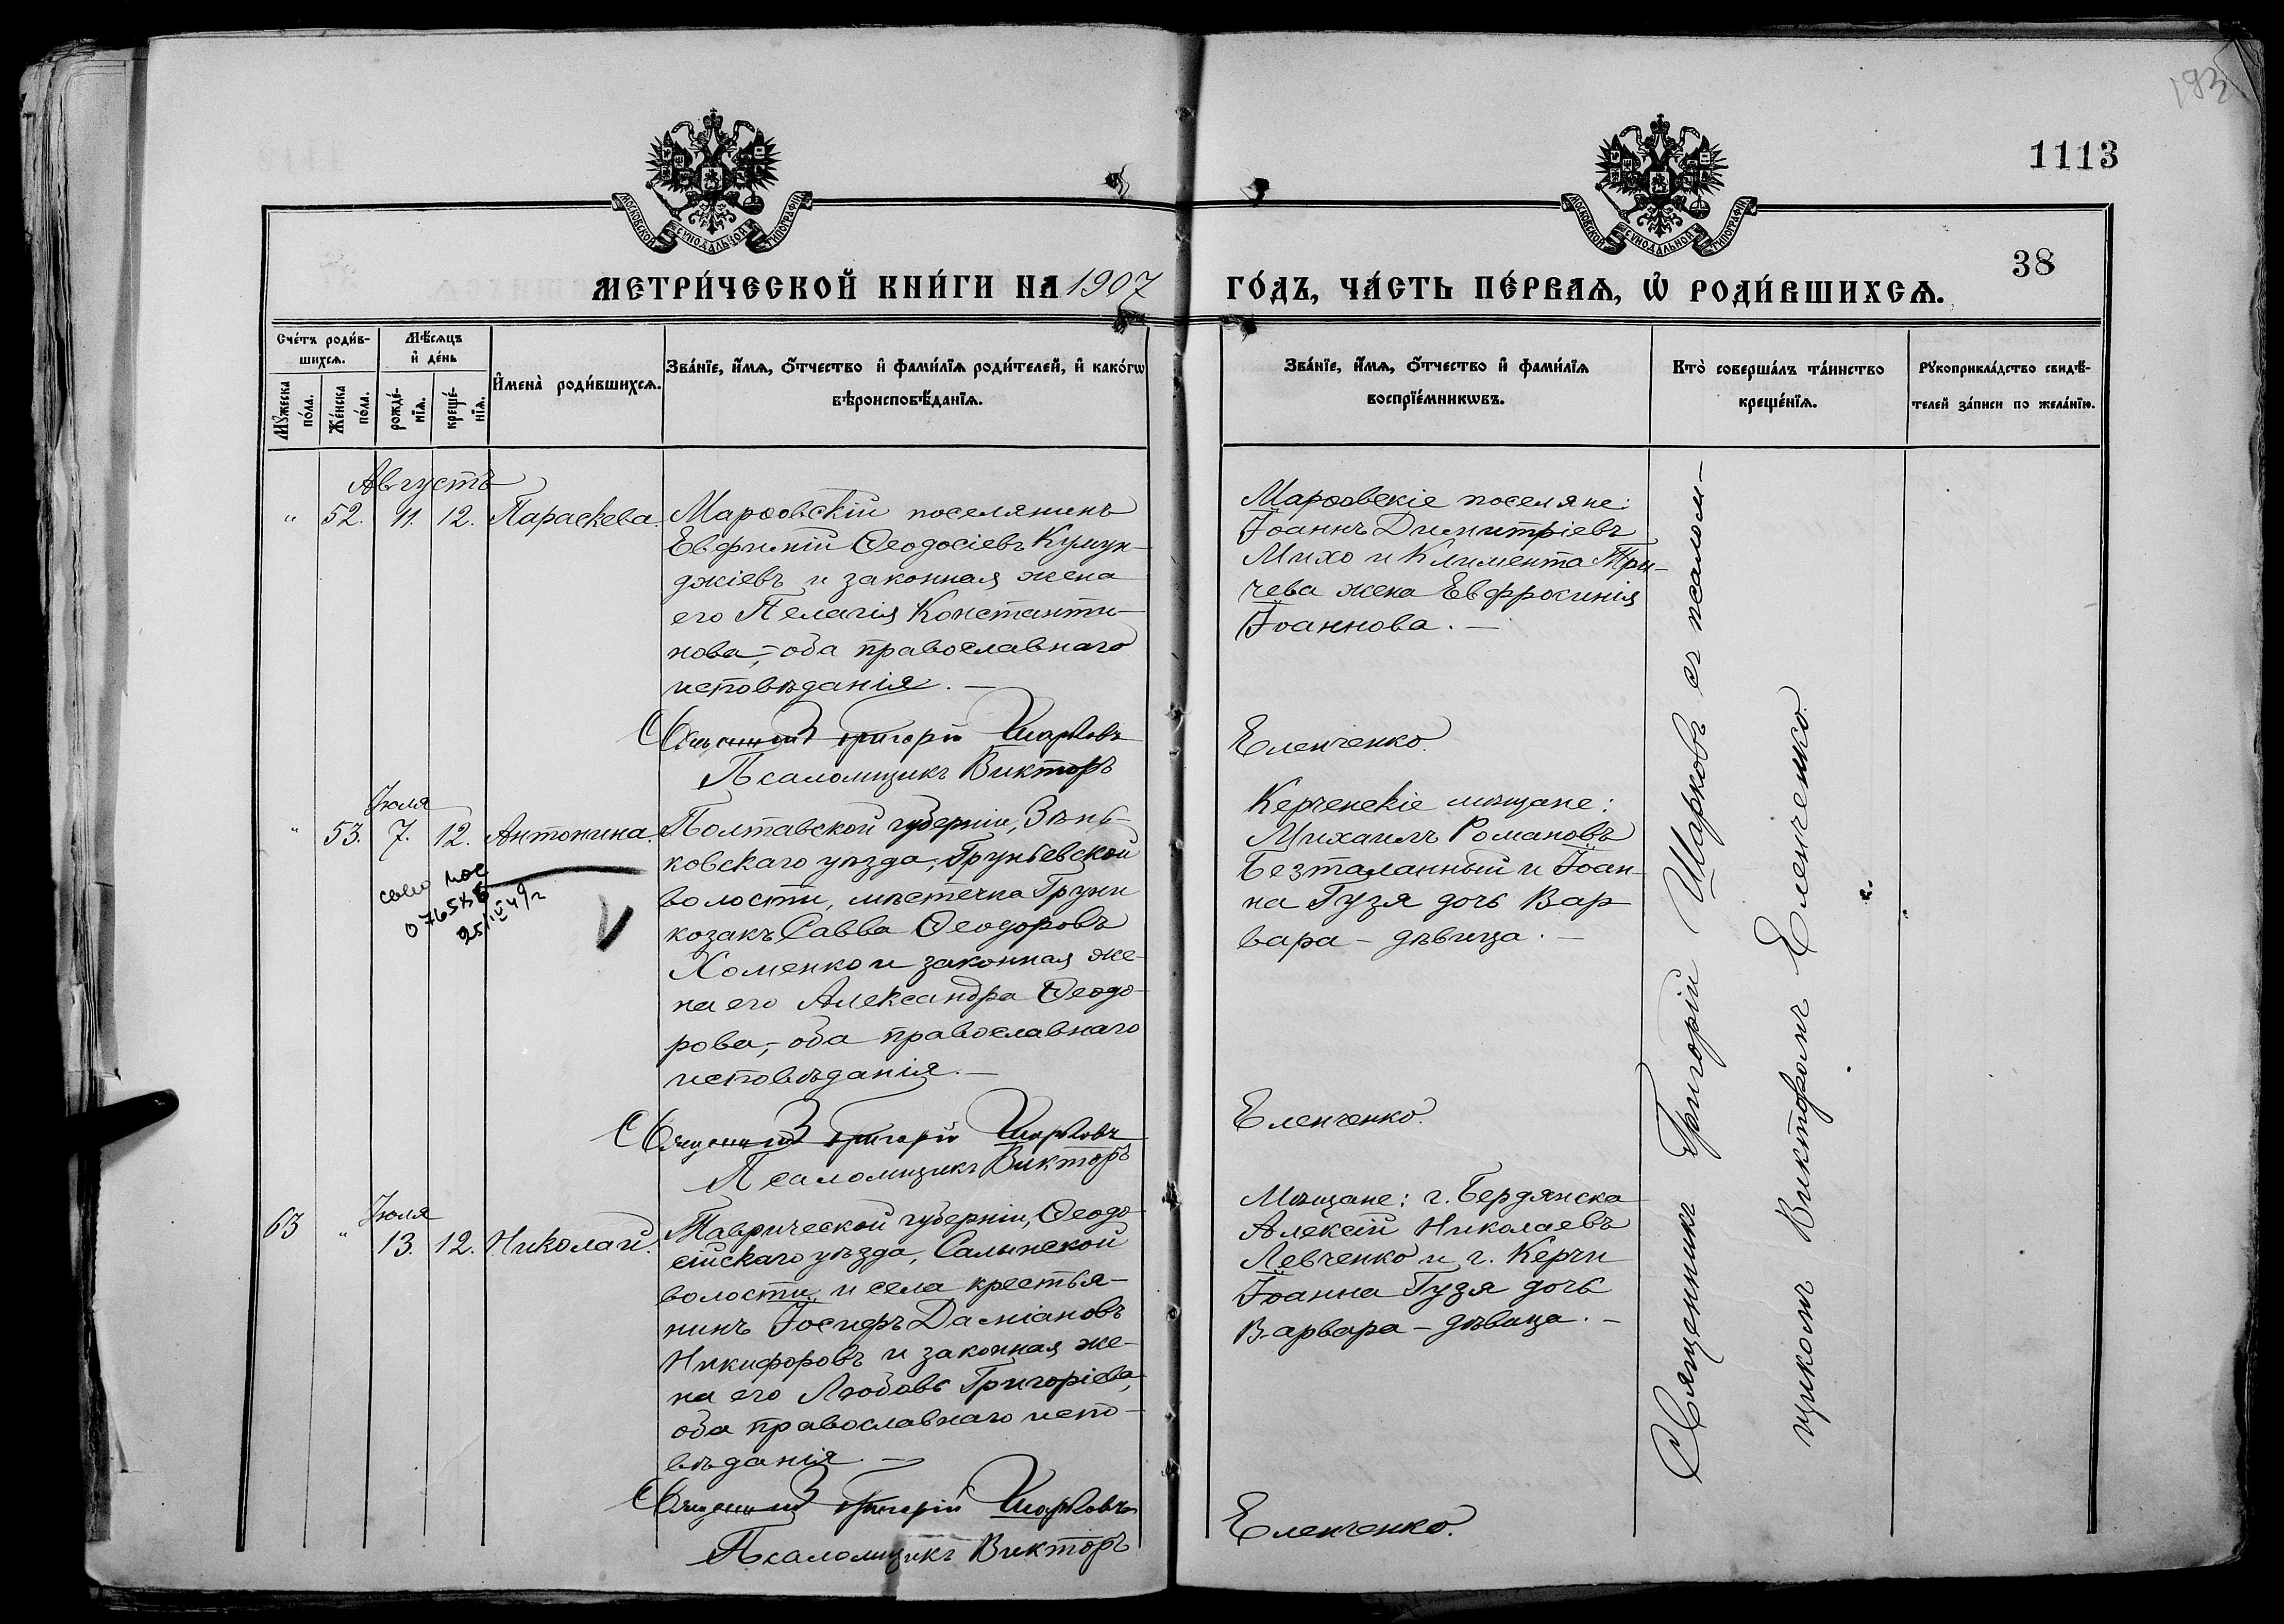 193
1113
38
МОСКОВСКОЙ СУНОДАЛЬНОЙ ТИПОГРАФІИ
МОСКОВСКОЙ СУНОДАЛЬНОЙ ТИПОГРАФІИ
МЕТРИ́ЧЕСКОЙ КНИ́ГИ НА 1907 ГО́ДЪ, ЧА́СТЬ ПЕ́РВАѦ, Ѡ РОДИ́ВШИХСѦ.
Сче́тъ роди́в-
шихсѧ.
Мꙋжеска по́ла.
Же́нска по́ла.
Мѣ́сѧцъ
и҆ де́нь
рожде́-нїѧ.
креще́-нїѧ.
И҆мена̀ роди́вшихсѧ.
Зва́нїе, и҆́мѧ, ѻ҆́тчество и҆ фами́лїѧ роди́телей, и҆ како́гѡ
вѣроисповѣ́данїѧ.
Зва́нїе, и҆́мѧ, ѻ҆́тчество и҆ фами́лїѧ
воспрїе́мникѡвъ.
Кто̀ соверша́лъ та́инство
креще́нїѧ.
Рꙋкоприкла́дство свидѣ́-
телей за́писи по жела́нїю.
Августъ
" 52. 11. 12. Параскева.
Марѳовскій поселянинъ
Евфимій Ѳеодосіевъ Кумун-
джіевъ и законная жена
его Пелагія Константи-
нова, - оба православнаго
исповѣданія. -
Священникъ Григорій Шарковъ
Псаломщикъ Викторъ
Марѳовскіе поселяне:
Іоаннъ Димитріевъ
Михо и Климента Три-
чева жена Евфросинія
Іоаннова. -
Еленченко.
Іюля
" 53. 7. 12. Антонина.
25/IV 49г
Полтавской губерніи, Зѣнь-
ковскаго уѣзда, Груньевской
волости, мѣстечка Груни
козакъ Савва Ѳеодоровъ
Хоменко и законная же-
на его Александра Ѳеодо-
рова, - оба православнаго
исповѣданія. -
Священникъ Григорій Шарковъ
Псаломщикъ Викторъ
Керченскіе мѣщане:
Михаилъ Романовъ
Безталанный и Іоан-
на Гузя дочь Вар-
вара - дѣвица. -
Еленченко.
Іюля
63 " 13. 12. Николай.
Таврической губерніи, Ѳеодо-
сійскаго уѣзда, Салынской
волости и села крестья-
нинъ Іосифъ Даміановъ
Никифоровъ и законная же-
на его Любовь Григоріева,
оба православнаго испо-
вѣданія. -
Священникъ Григорій Шарковъ
Псаломщикъ Викторъ
Мѣщане: г. Бердянска
Алексій Николаевъ
Левченко и г. Керчи
Іоанна Гузя дочь
Варвара - дѣвица. -
Еленченко.
Священникъ Григорій Шарковъ съ псалом-
щикомъ Викторомъ Еленченко.